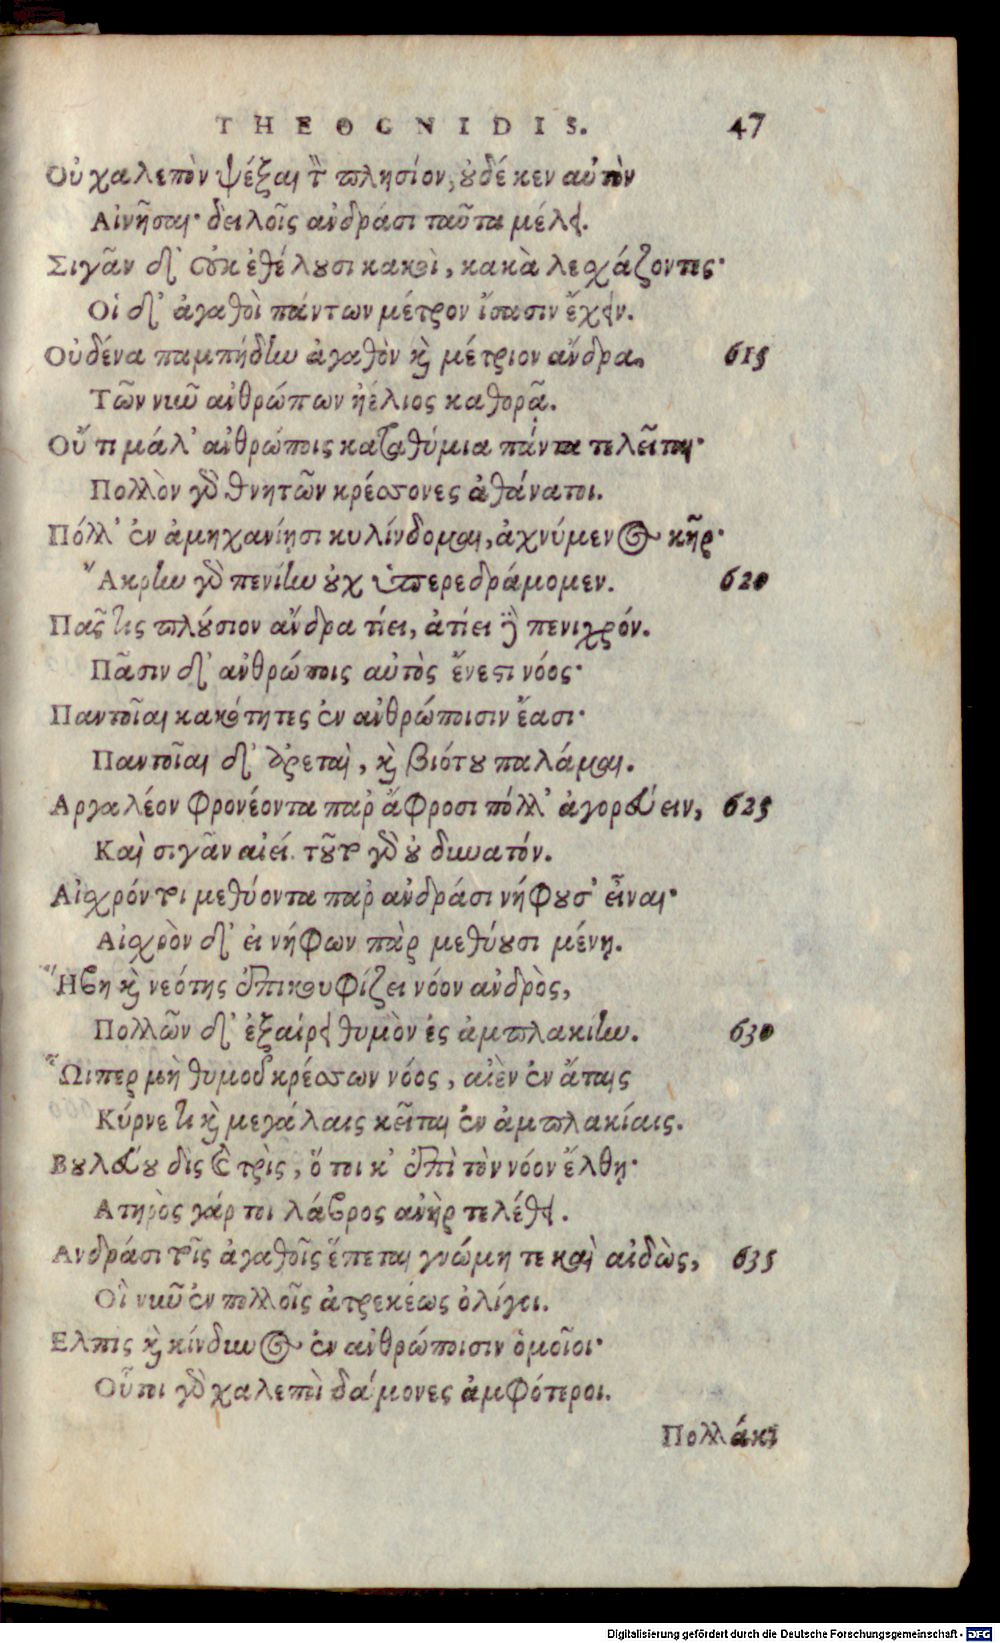 THEOGNIDIS. 47
Οὐ χαλεπὸν ψέξαι τὸν πλησίον, οὐδέ κεν αὐτὸν
Αἰνῆσαι· δειλοῖς ἀνδράσι ταῦτα μέλει.
Σιγᾶν δ' οὐκ ἐθέλουσι κακοὶ, κακὰ λεσχάζοντες·
Οἱ δ' ἀγαθοὶ πάντων μέτρον ἴσασιν ἔχειν.
Οὐδένα παμπήδην ἀγαθὸν καὶ μέτριον ἄνδρα 615
Τῶν νῦν ἀνθρώπων ἠέλιος καθορᾷ.
Οὔ τι μάλ' ἀνθρώποις καταθύμια πάντα τελεῖται·
Πολλὸν γὰρ θνητῶν κρέσσονες ἀθάνατοι.
Πόλλ' ἐν ἀμηχανίῃσι κυλίνδομαι, ἀχνύμενος κῆρ·
Ἄκρην γὰρ πενίην οὐχ ὑπερεδράμομεν. 620
Πᾶς τις πλούσιον ἄνδρα τίει, ἀτίει δὲ πενιχρόν.
Πᾶσιν δ' ἀνθρώποις αὐτὸς ἔνεστι νόος·
Παντοῖαι κακότητες ἐν ἀνθρώποισιν ἔασι·
Παντοῖαι δ' ἀρεταὶ, καὶ βιότου παλάμαι.
Αργαλέον φρονέοντα παρ' ἄφροσι πόλλ' ἀγορεύειν, 625
Καὶ σιγᾶν αἰεί. τοῦτο γὰρ οὐ δυνατόν.
Αἰσχρόν τοι μεθύοντα παρ' ἀνδράσι νήφουσ' εἶναι·
Αἰσχρὸν δ' εἰ νήφων πὰρ μεθύουσι μένῃ.
Ἥβη καὶ νεότης ἐπικουφίζει νόον ἀνδρὸς,
Πολλῶν δ' ἐξαίρει θυμὸν ἐς ἀμπλακίην. 630
Ὧιπερ μὴ θυμοῦ κρέσσων νόος, αἰὲν ἐν ἄταις
Κύρνε τι καὶ μεγάλαις κεῖται ἐν ἀμπλακίαις.
Βουλεύου δὶς καὶ τρὶς, ὅ τοι κ' ἐπὶ τὸν νόον ἔλθῃ·
Ατηρὸς γάρ τοι λάβρος ἀνὴρ τελέθει.
Ανδράσι τοῖς ἀγαθοῖς ἕπεται γνώμη τε καὶ αἰδὼς, 635
Οἳ νῦν ἐν πολλοῖς ἀτρεκέως ὀλίγοι.
Ελπὶς καὶ κίνδυνος ἐν ἀνθρώποισιν ὁμοῖοι·
Οὗτοι γὰρ χαλεποὶ δαίμονες ἀμφότεροι.
Πολλάκι
Digitalisierung gefördert durch die Deutsche Forschungsgemeinschaft - DFG